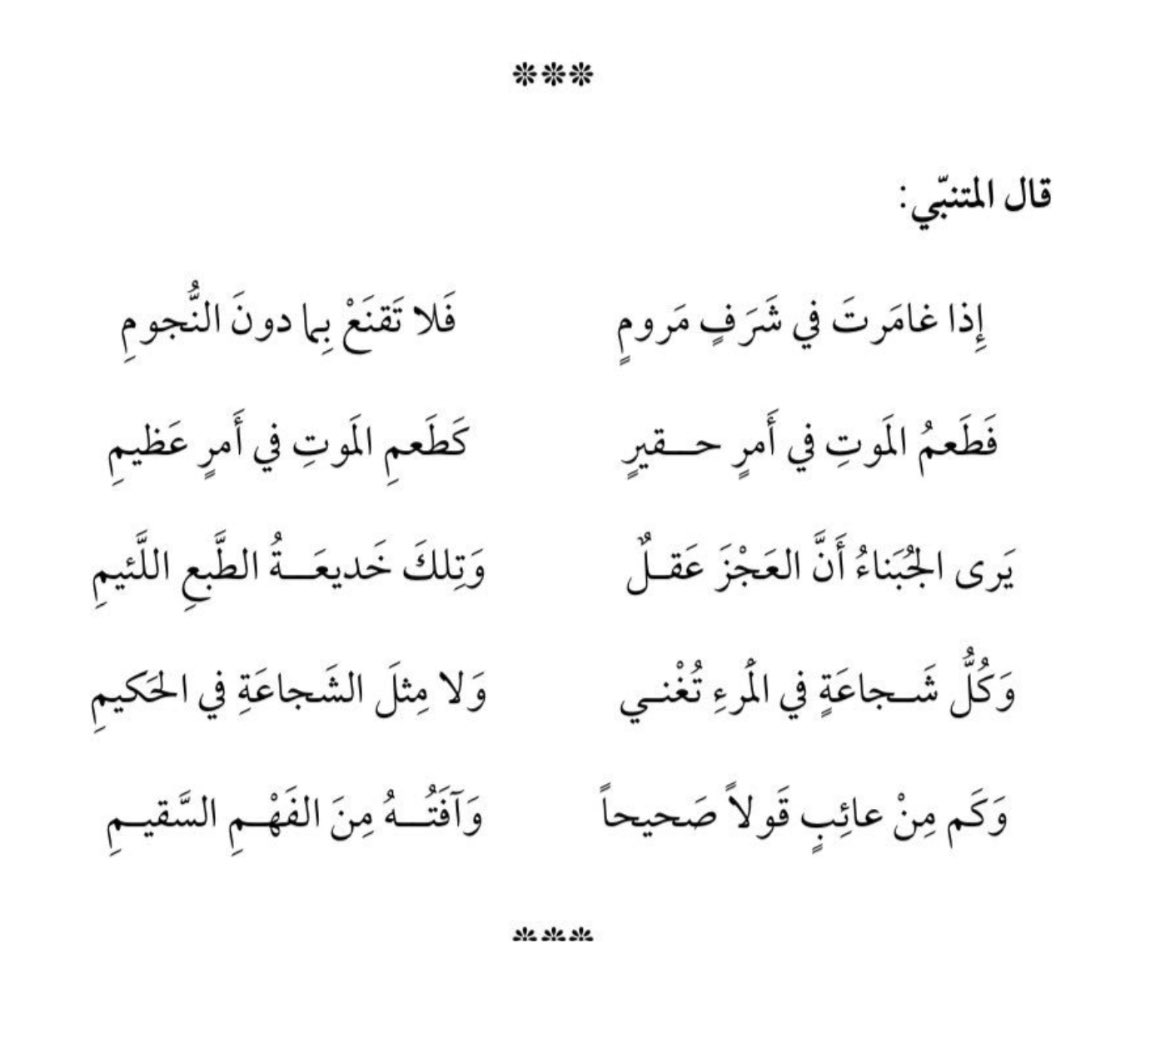 ***
قال المتنبّي:
إِذا غامَرتَ في شَرَفٍ مَرومٍ فَلا تَقنَعْ بِما دونَ النُّجومِ
فَطَعمُ المَوتِ في أَمرٍ حـــقيرٍ كَطَعمِ المَوتِ في أَمرٍ عَظيمِ
يَرى الجُبَناءُ أَنَّ العَجْزَ عَقـلٌ وَتِلكَ خَديعَـــةُ الطَّبعِ اللَّئيمِ
وَكُلُّ شَـــجاعَةٍ في المْرءِ تُغْنـي وَلا مِثلَ الشَجاعَةِ في الحَكيمِ
وَكَم مِنْ عائِبٍ قَولاً صَحيحاً وَآفَتُـــهُ مِنَ الفَهْـــمِ السَّقيـمِ
***